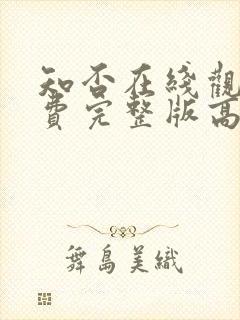 知否在綫觀
費完整版高
舞島美織